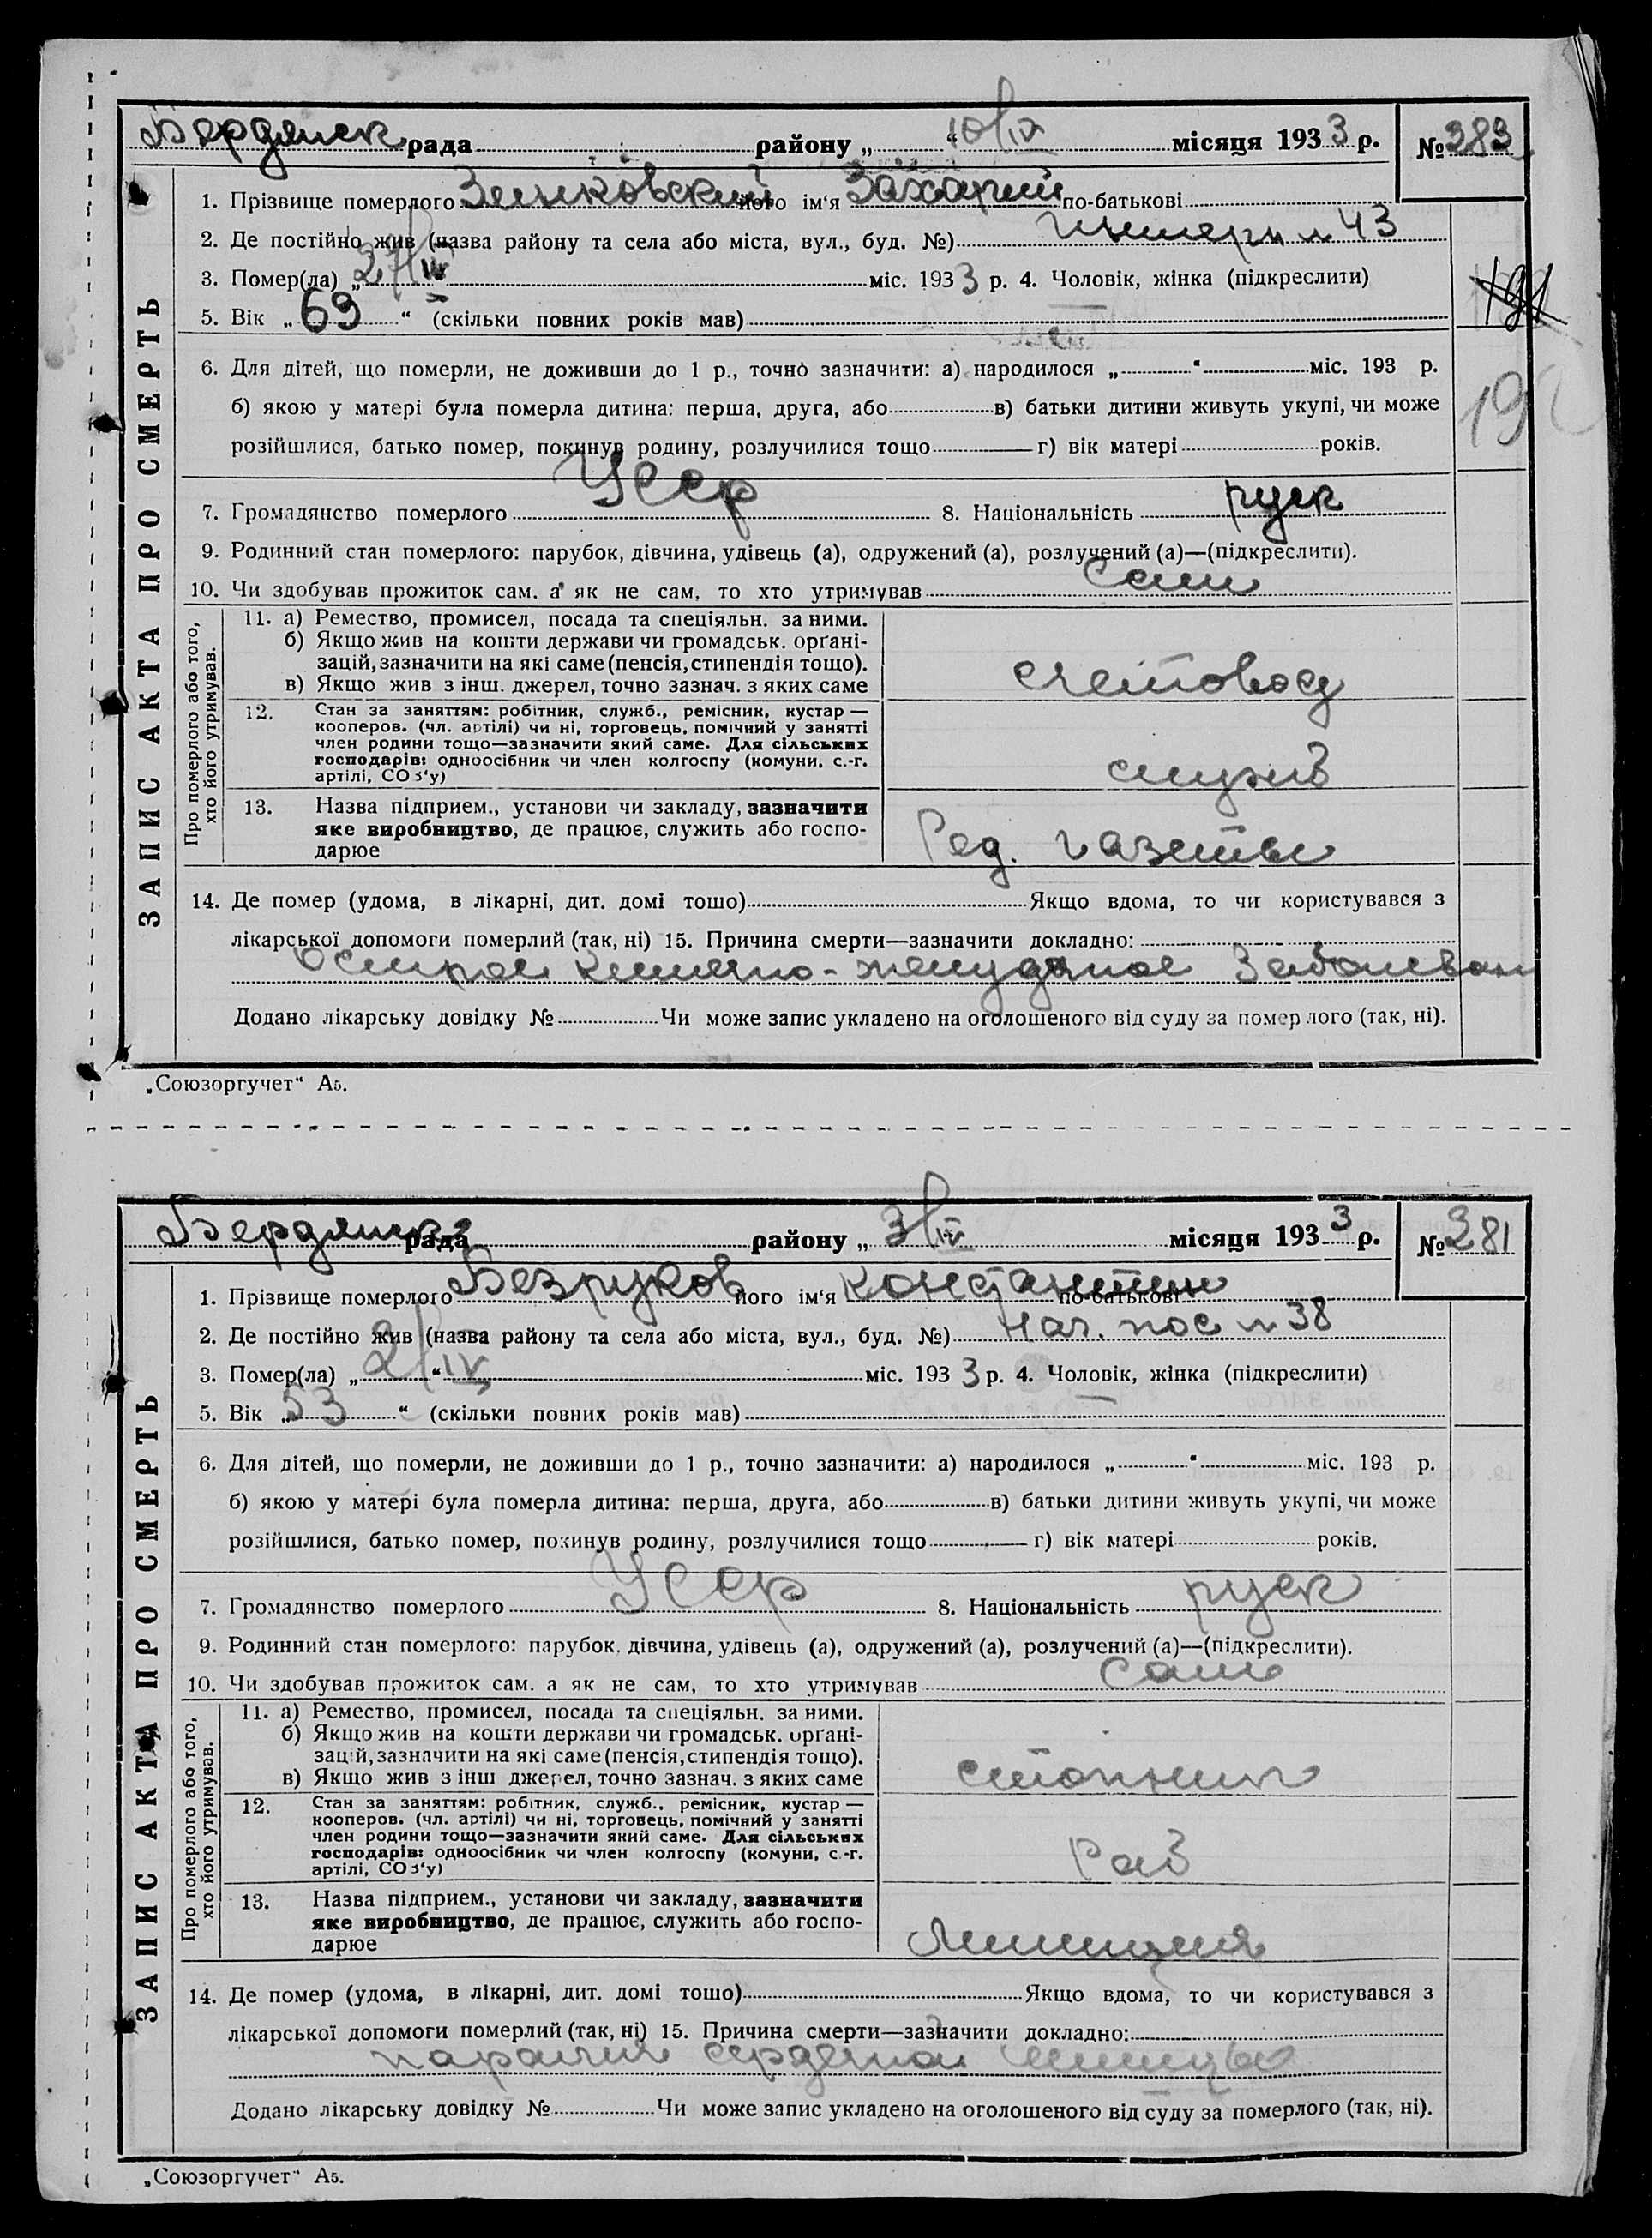 Бердянск рада района „10/IV“ місяця 1933 р. № 383
1. Прізвище померлого Зеньковский його ім'я Захарий по-батькові
2. Де постійно жив (назва району та села або міста, вул., буд. №) № 43
3. Помер(ла) „27/III міс. 1933 р. 4. Чоловік, жінка (підкреслити)
5. Вік „69“ (скільки повних років мав)
6. Для дітей, що померли, не доживши до 1 р., точно зазначити: а) народилося „ “ міс. 193 р.
б) якою у матері була померла дитина: перша, друга, або в) батьки дитини живуть укупі, чи може
192
розійшлися, батько помер, покинув родину, розлучилися тощо г) вік матері років.
7. Громадянство померлого Усср 8. Національність руск
9. Родинний стан померлого: парубок, дівчина, удівець (а), одружений (а), розлучений (а)—(підкреслити).
10. Чи здобував прожиток сам. а як не сам, то хто утримував сам
Про померлого або того, хто його утримував.
11. а) Ремество, промисел, посада та спеціяльн. за ними.
б) Якщо жив на кошти держави чи громадськ. орґані-
зацій, зазначити на які саме (пенсія, стипендія тощо).
в) Якщо жив з інш. джерел, точно зазнач. з яких саме
счетовод
12. Стан за заняттям: робітник, служб., ремісник, кустар —
кооперов. (чл. артілі) чи ні, торговець, помічний у занятті
член родини тощо—зазначити який саме. Для сільських
господарів: одноосібник чи член колгоспу (комуни, с.-г.
артілі, СОЗ'у)
служ
13. Назва підприєм., установи чи закладу, зазначити
яке виробництво, де працює, служить або госпо-
дарює
Ред. газеты
14. Де помер (удома, в лікарні, дит. домі тощо) Якщо вдома, то чи користувався з
лікарської допомоги померлий (так, ні) 15. Причина смерти—зазначити докладно:
Острое кишечно-желудочное заболеван
Додано лікарську довідку № Чи може запис укладено на оголошеного від суду за померлого (так, ні).
ЗАПИС АКТА ПРО СМЕРТЬ
„Союзоргучет“ А5.
Бердянск рада району „3/IV місяця 1933 р. № 381
1. Прізвище померлого Безруков його ім'я Константин по-батькові
2. Де постійно жив (назва району та села або міста, вул., буд. №) Наг. пос № 38
3. Помер(ла) „2/IV“ міс. 1933 р. 4. Чоловік, жінка (підкреслити)
5. Вік „53“ (скільки повних років мав)
6. Для дітей, що померли, не доживши до 1 р., точно зазначити: а) народилося „ “ міс. 193 р.
б) якою у матері була померла дитина: перша, друга, або в) батьки дитини живуть укупі, чи може
розійшлися, батько помер, покинув родину, розлучилися тощо г) вік матері років.
7. Громадянство померлого Усср 8. Національність руск
9. Родинний стан померлого: парубок, дівчина, удівець (а), одружений (а), розлучений (а)—(підкреслити).
10. Чи здобував прожиток сам. а як не сам, то хто утримував сам
Про померлого або того, хто його утримував.
11. а) Ремество, промисел, посада та спеціяльн. за ними.
б) Якщо жив на кошти держави чи громадськ. орґані-
зацій, зазначити на які саме (пенсія, стипендія тощо).
в) Якщо жив з інш джерел, точно зазнач. з яких саме
стопник
12. Стан за заняттям: робітник, служб., ремісник, кустар —
кооперов. (чл. артілі) чи ні, торговець, помічний у занятті
член родини тощо—зазначити який саме. Для сільських
господарів: одноосібник чи член колгоспу (комуни, с.-г.
артілі, СОЗ'у)
Раб
13. Назва підприєм., установи чи закладу, зазначити
яке виробництво, де працює, служить або госпо-
дарює
Милиция
14. Де помер (удома, в лікарні, дит. домі тощо) Якщо вдома, то чи користувався з
лікарської допомоги померлий (так, ні) 15. Причина смерти—зазначити докладно:
паралич сердечной мышцы
Додано лікарську довідку № Чи може запис укладено на оголошеного від суду за померлого (так, ні).
ЗАПИС АКТА ПРО СМЕРТЬ
„Союзоргучет“ А5.